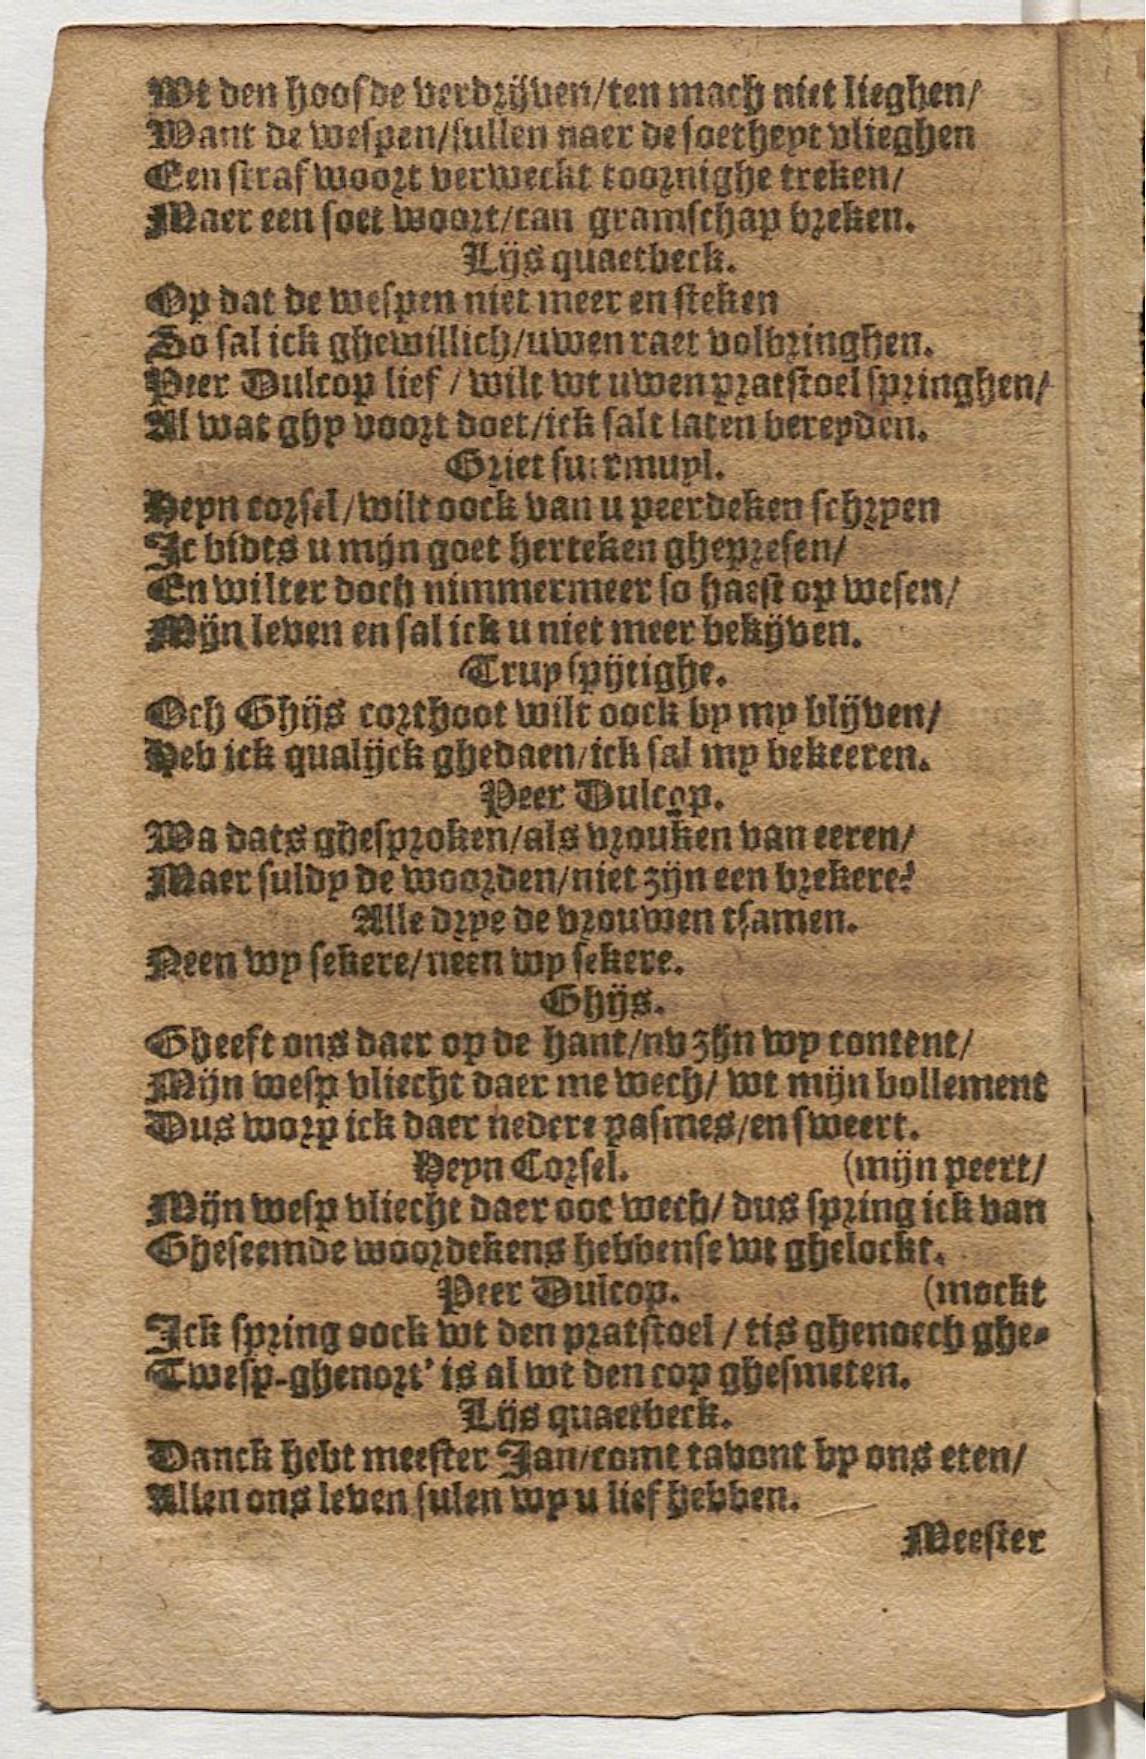 Wt den hoofde verdrijven/ten mach niet lieghen/
Want de wespen/sullen naer de soetheyt vlieghen
Een straf woort verweckt toornighe treken/
Maer een soet woort/can gramschap breken.
Lijs quaetbeck.
Op dat de wespen niet meer en steken
So sal ick ghewillich/uwen raet volbringhen.
Peer Dulcop lief / wilt wt uwen pratstoel springhen/
Al wat ghy voort doet/ick salt laten bereyden.
Griet suermuyl.
Heyn corsel/wilt oock van u peerdeken schryen
Ic bidts u mijn goet herteken ghepresen/
En wilter doch nimmermeer so haest op wesen/
Mijn leven en sal ick u niet meer bekijven.
Truy spijtighe.
Och Ghijs corthoot wilt oock by my blijven/
Heb ick qualijck ghedaen/ick sal my bekeeren.
Peer Dulcop.
Wa dats ghesproken/als vrouken van eeren/
Maer suldy de woorden/niet zijn een brekere?
Alle drye de vrouwen tsamen.
Neen wy sekere/neen wy sekere.
Ghijs.
Gheeft ons daer op de hant/nv zijn wy content/
Mijn wesp vliecht daer me wech/ wt mijn bollement
Dus worp ick daer nedere pasmes/en sweert.
Heyn Corsel. (mijn peert/
Mijn wesp vliecht daer ooc wech/ dus spring ick van
Gheseemde woordekens hebbense wt ghelockt.
Peer Dulcop. (mockt
Ick spring oock wt den pratstoel / tis ghenoech ghe-
Twesp-ghenort' is al wt den cop ghesmeten.
Lijs quaetbeck.
Danck hebt meester Jan/comt tavont by ons eten/
Allen ons leven sulen wy u lief hebben.
Meester